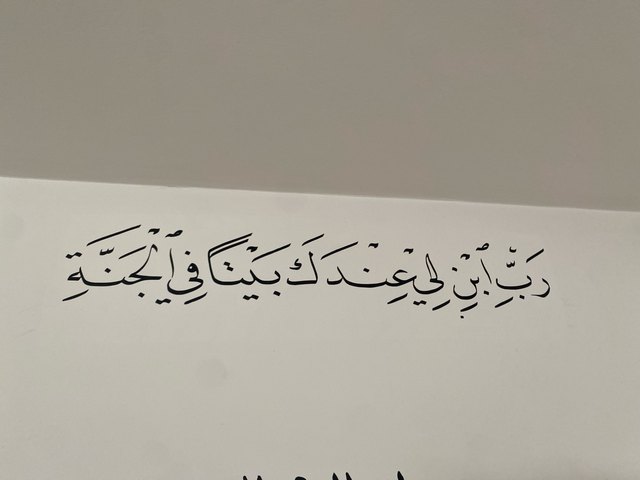 رَبِّ ٱبْنِ لِي عِنْدَكَ بَيْتًا فِي ٱلْجَنَّةِ